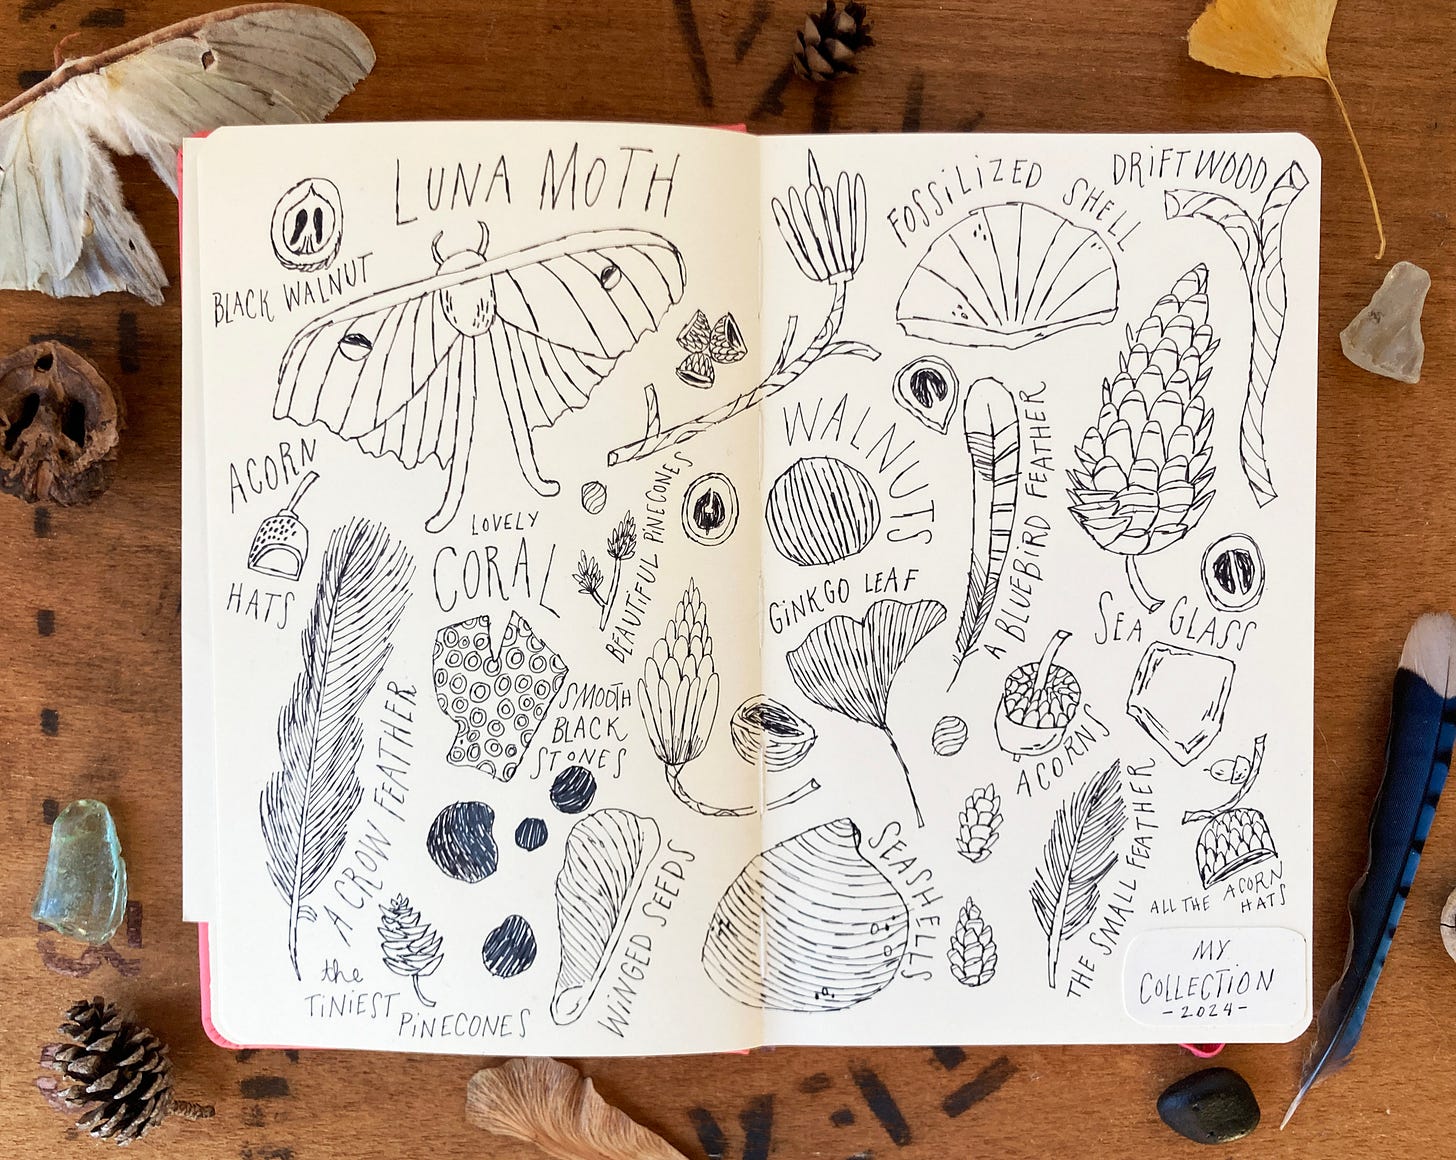 LUNA MOTH
BLACK WALNUT
ACORN
HATS
LOVELY
CORAL
BEAUTIFUL PINECONES
SMOOTH
BLACK
STONES
A CROW FEATHER
the
TINIEST
PINECONES
WINGED SEEDS
FOSSILIZED
SHELL
DRIFTWOOD
WALNUTS
A BLUEBIRD FEATHER
GINKGO LEAF
SEA GLASS
ACORNS
SEASHELLS
THE SMALL FEATHER
ALL THE ACORN
HATS
MY
COLLECTION
-2024-